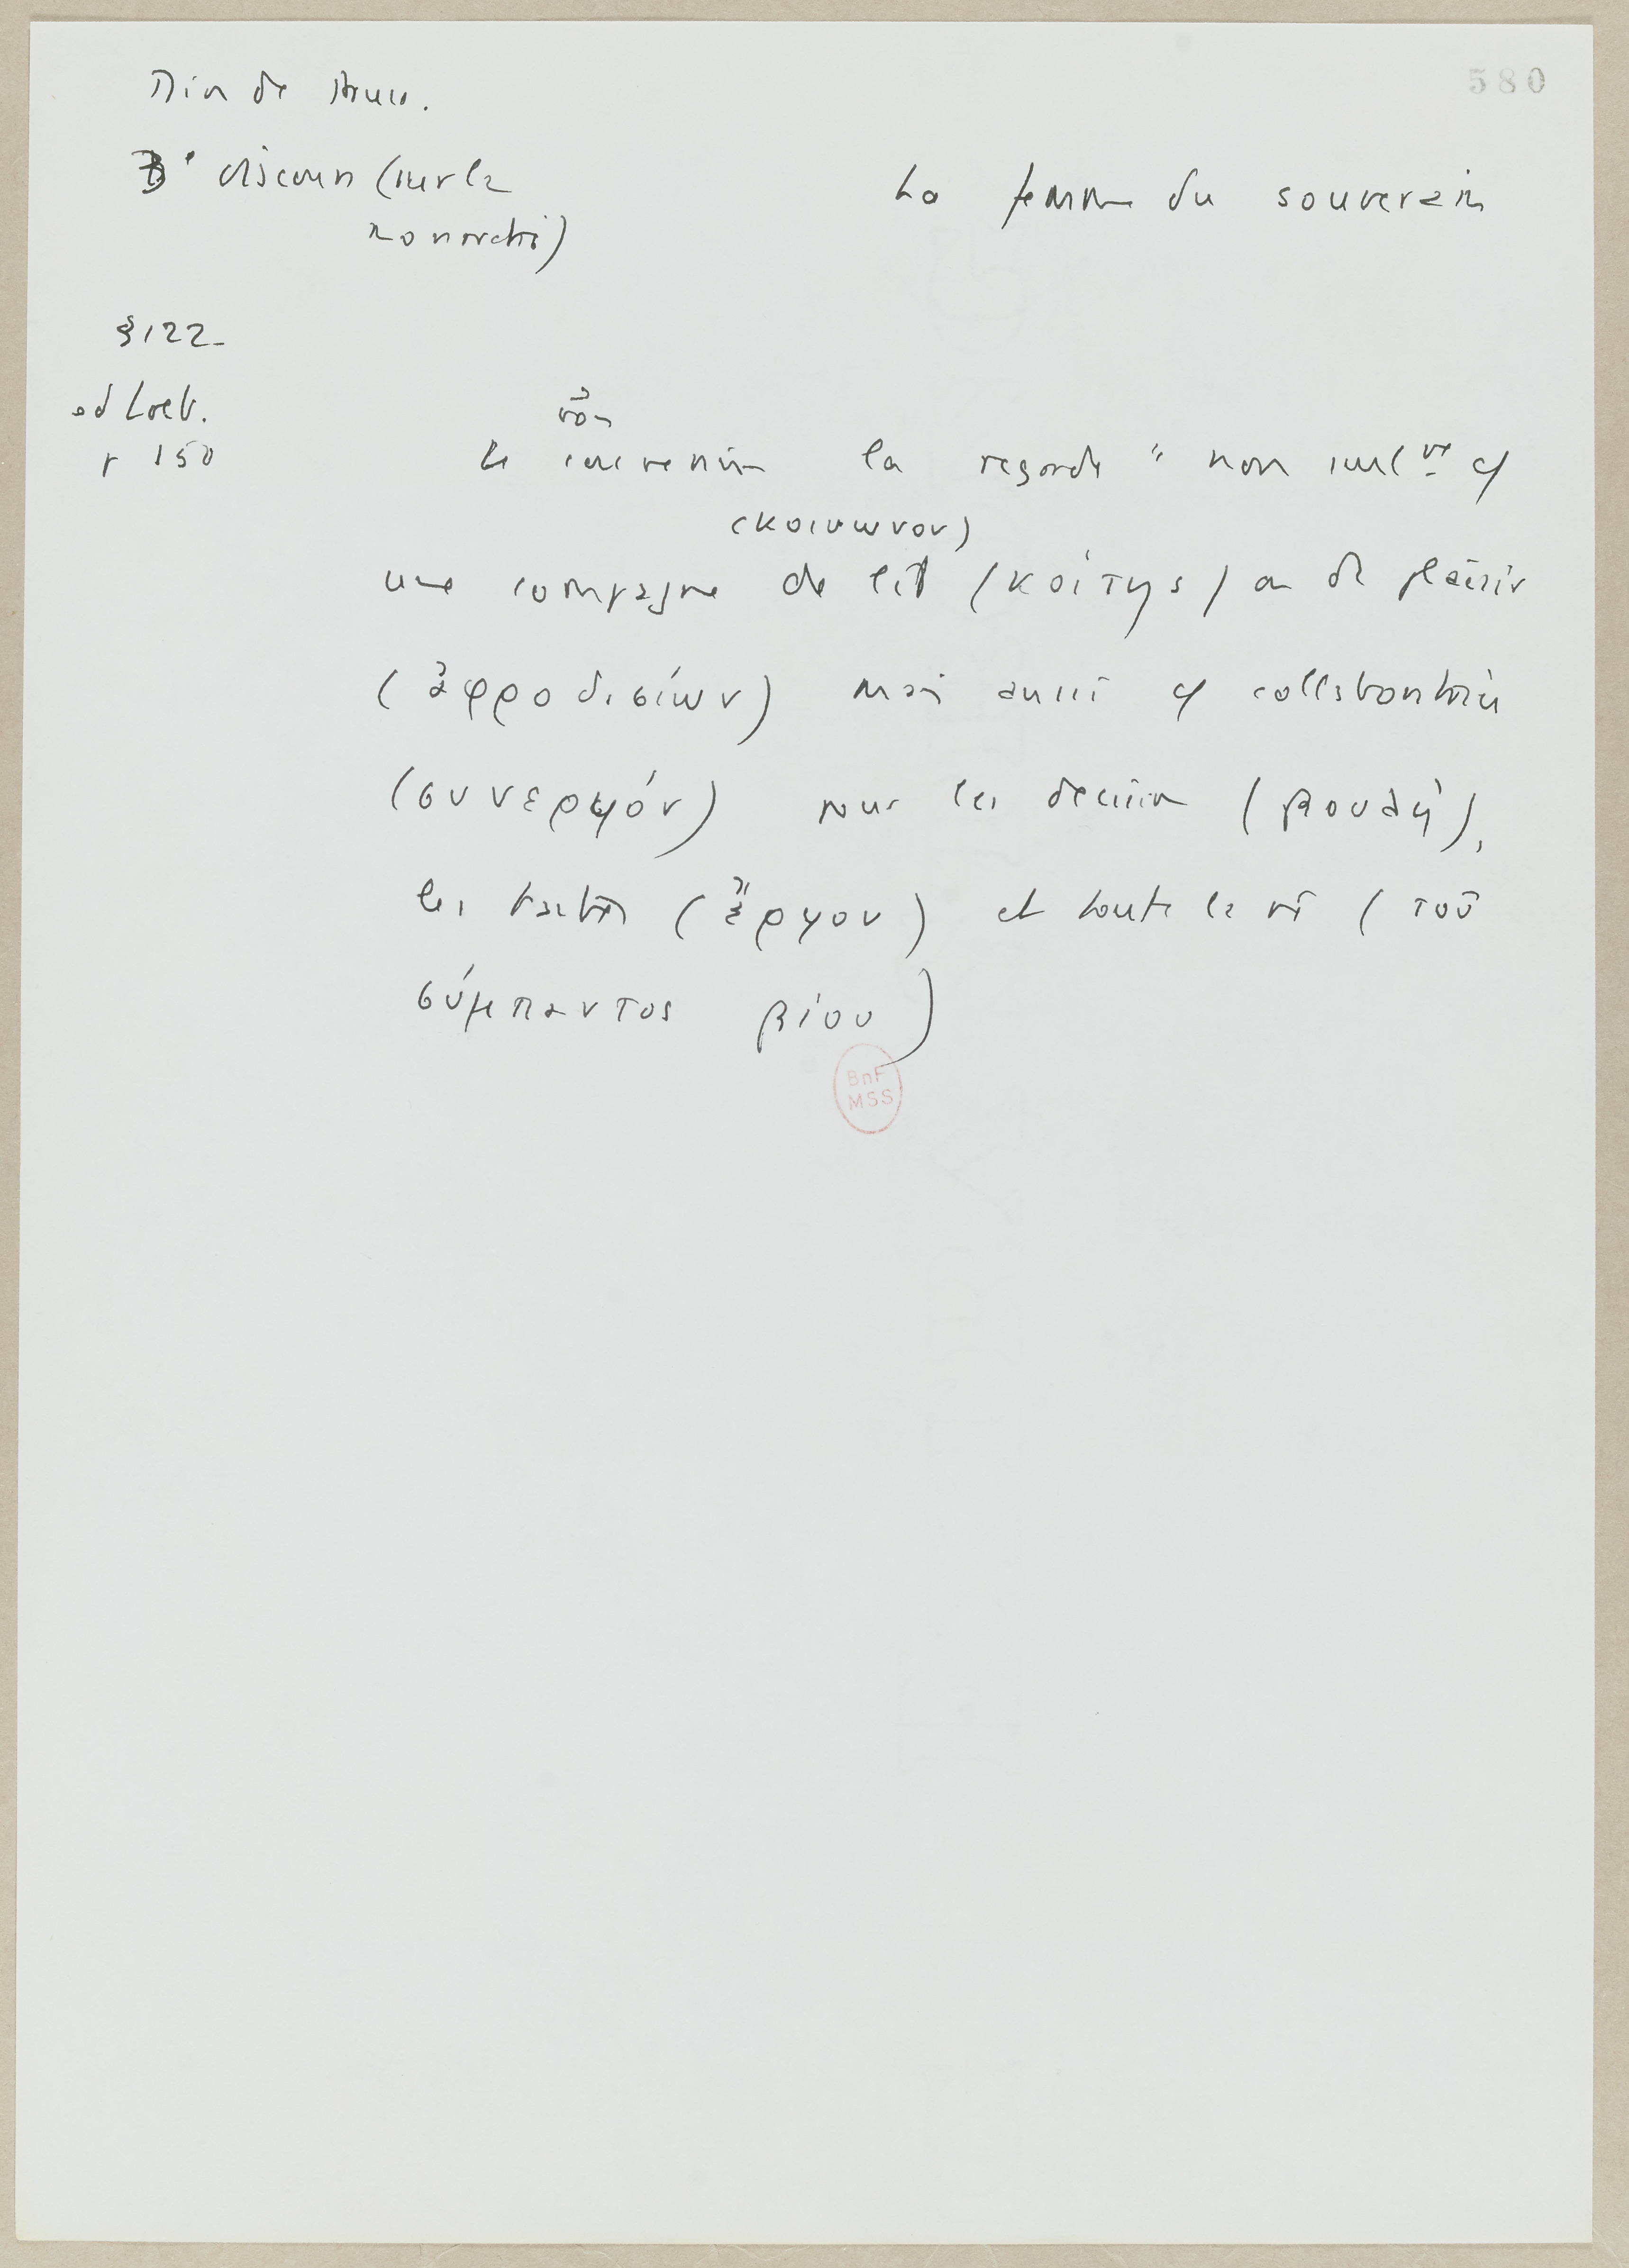 580
Dion de Pruse.
3e discours (sur la
monarchie)
La femme du souverain
§122-
ed Loeb.
p 150
Le souverain la regarde " non seult cō
(κοινωνον)
une compagne de lit (κοίτης) ou de plaisir
(ἀφροδισίων) mais aussi cō collaboratrice
(συνεργόν) pour les decisions (βουλή),
les (ἔργον) et toute la vie (τοῦ
σύμπαντος βίου)
BnF
MSS